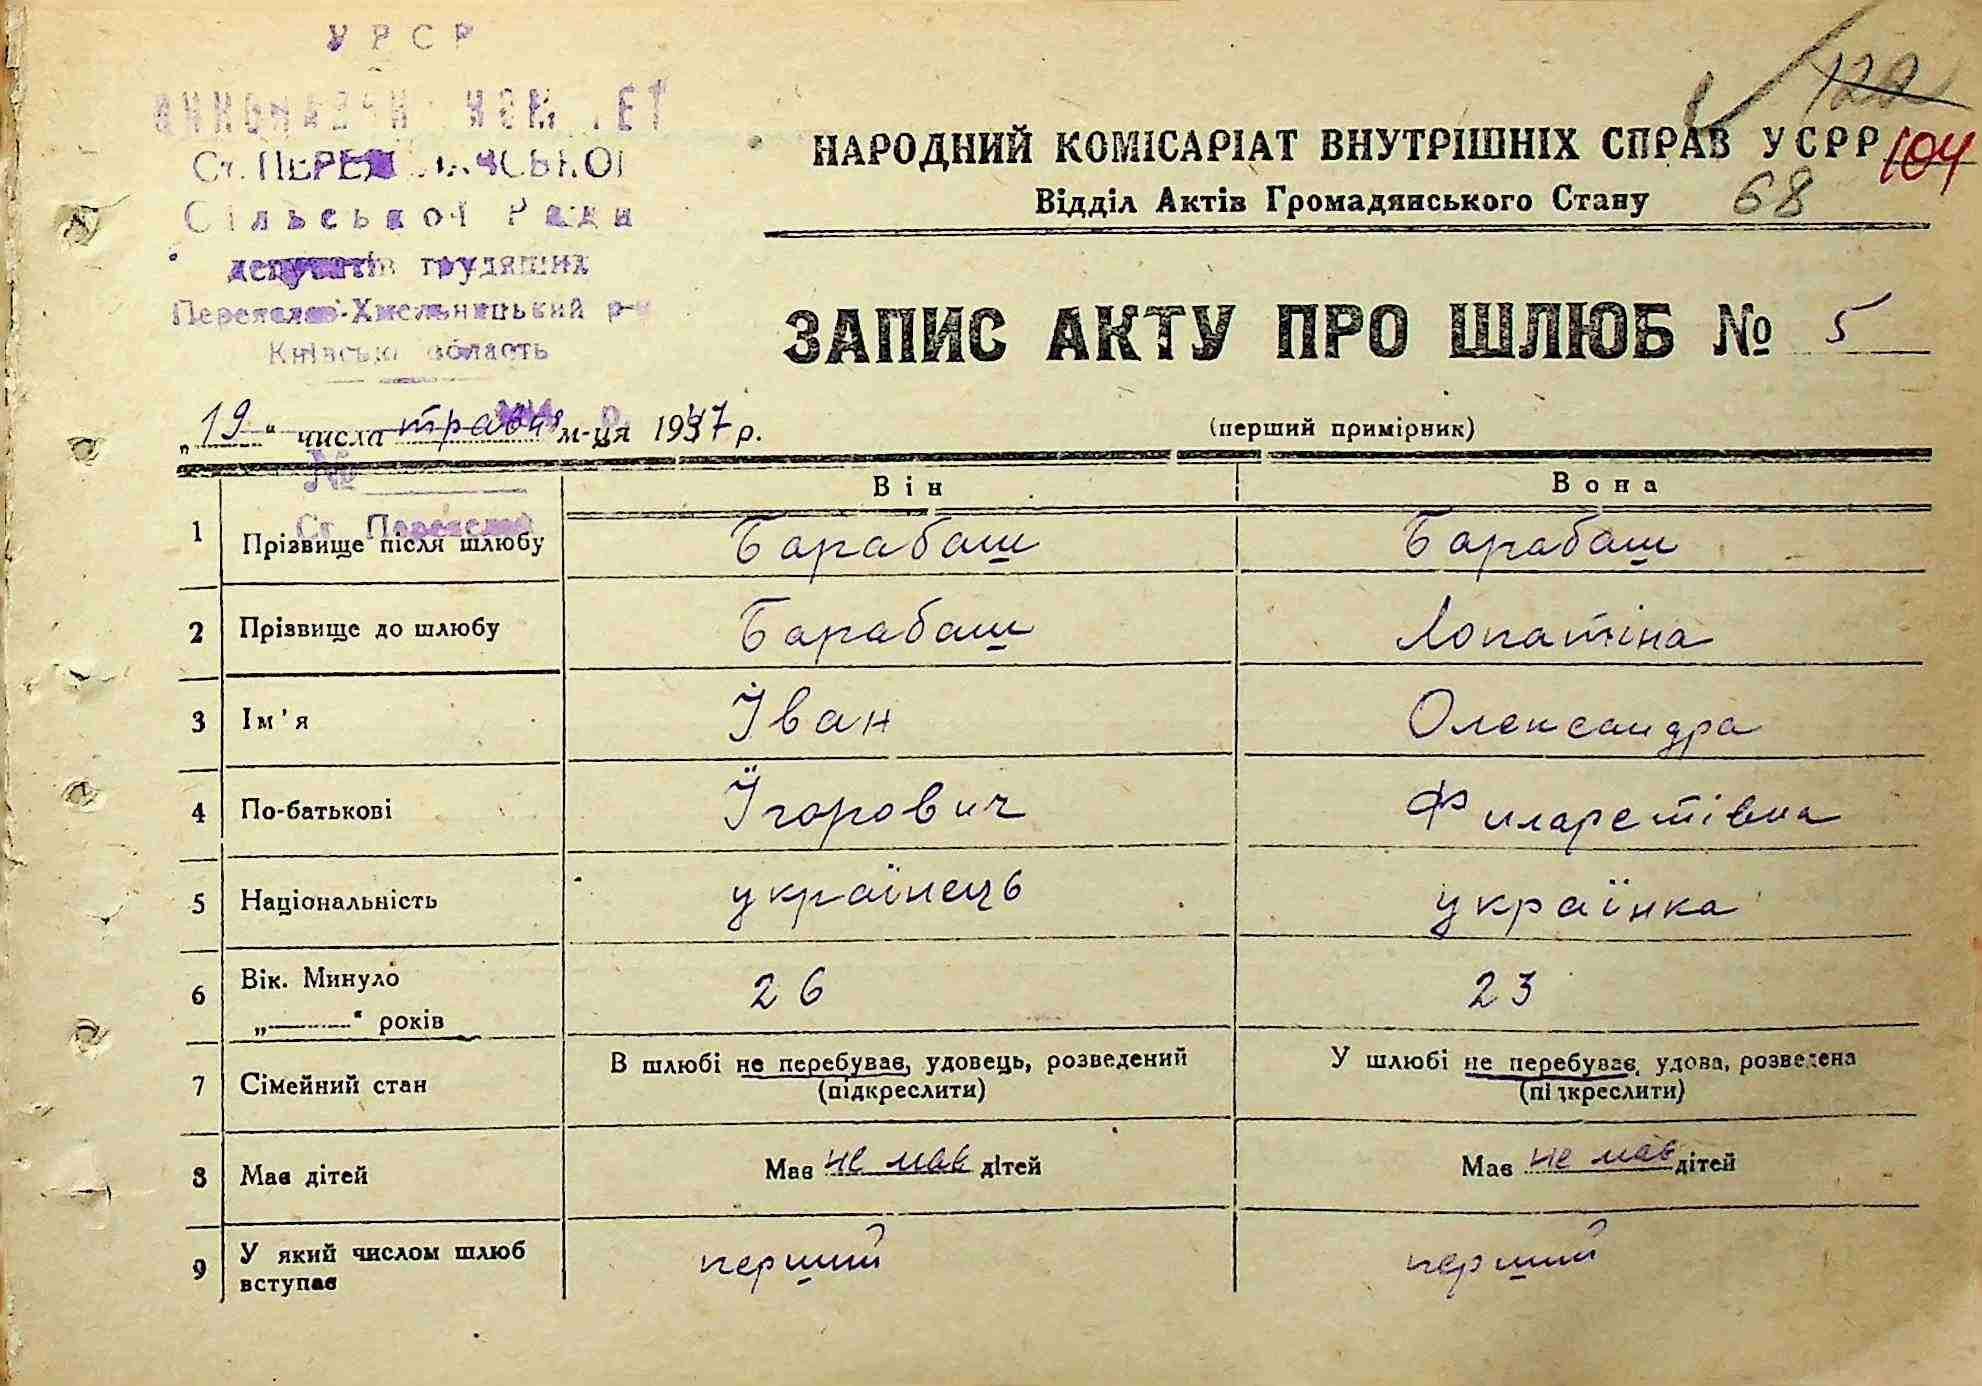 УРСР
Ст. ПЕРЕЯСЛАВСЬКОЇ
Сільської Ради
депутатів трудящих
Переяслав-Хмельницький р-н
Київська область
НАРОДНИЙ КОМІСАРІАТ ВНУТРІШНІХ СПРАВ УСРР
122
104
Відділ Актів Громадянського Стану
68
ЗАПИС АКТУ ПРО ШЛЮБ № 5
„19“ числа травня м-ця 1947 р.
(перший примірник)
№
Ст. Переяслав
Він
Вона
1 Прізвище після шлюбу Барабаш Барабаш
2 Прізвище до шлюбу Барабаш Лопатіна
3 Ім'я Іван Олександра
4 По-батькові Їгорович Филаретівна
5 Національність українець українка
6 Вік. Минуло 26 23
„ “ років
7 Сімейний стан В шлюбі не перебував, удовець, розведений У шлюбі не перебував, удова, розведена
(підкреслити) (підкреслити)
8 Має дітей Має не має дітей Має не має дітей
9 У який числом шлюб перший перший
вступає